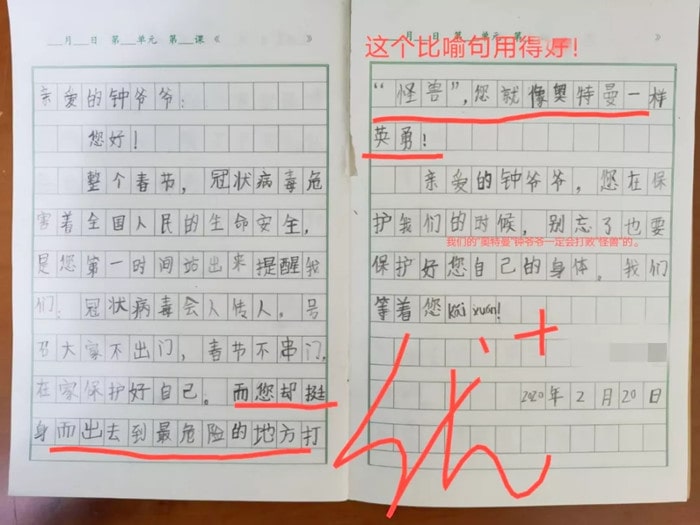 月 日 第 单元 第 课《 》
亲爱的钟爷爷：
您好！
整个春节，冠状病毒危
害着全国人民的生命安全，
是您第一时间站出来提醒我
们。冠状病毒会人传人。号
召大家不出门，春节不串门，
在家保护好自己。而您却挺
身而出去到最危险的地方打
月 日 第 单元 第
这个比喻句用得好！
“怪兽”，您就像奥特曼一样
英勇！
亲爱的钟爷爷，您在保
护我们的时候，别忘了也要
我们的“奥特曼”钟爷爷一定会打败“怪兽”的。
保护好您自己的身体。我们
等着您kǎi xuán！
优+
2020年2月20日